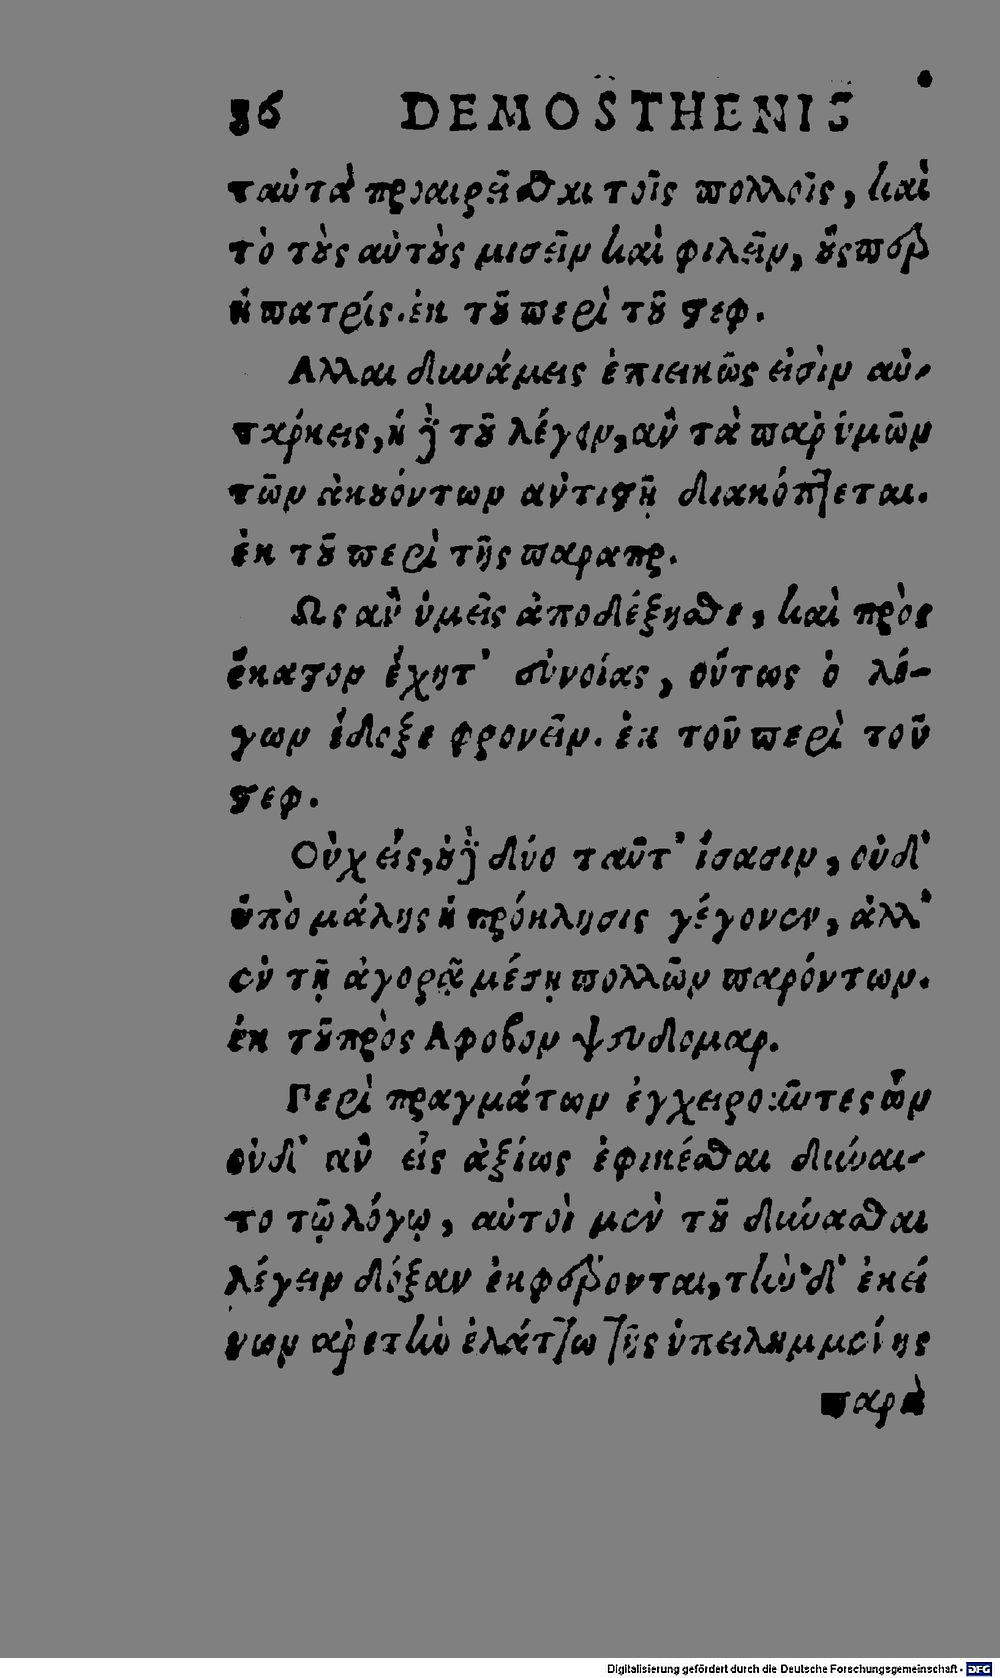 36 DEMOSTHENIS
ταὐτὰ προαιρεῖσθαι τοῖς πολλοῖς, καὶ
τὸ τοὺς αὐτοὺς μισεῖν καὶ φιλεῖν, οὕσπερ
ἡ πατρίς. ἐκ τοῦ περὶ τοῦ στεφ.
Αλλαι δυνάμεις ἐπιεικῶς εἰσὶν αὐ-
τάρκεις, ἡ δὲ τοῦ λέγειν, ἂν τὰ παρ' ὑμῶν
τῶν ἀκουόντων ἀντιστῇ διακόπτεται.
ἐκ τοῦ περὶ τῆς παραπρ.
Ως ἂν ὑμεῖς ἀποδέξησθε, καὶ πρὸς
ἕκαστον ἔχητ' εὐνοίας, οὕτως ὁ λέ-
γων ἔδοξε φρονεῖν. ἐκ τοῦ περὶ τοῦ
στεφ.
Οὐχ εἷς, οὐδὲ δύο ταῦτ' ἴσασιν, οὐδ'
ὑπὸ μάλης ἡ πρόκλησις γέγονεν, ἀλλ'
ἐν τῇ ἀγορᾷ μέσῃ πολλῶν παρόντων.
ἐκ τοῦ πρὸς Αφοβον ψευδομαρ.
Περὶ πραγμάτων ἐγχειροῦντες ὧν
οὐδ' ἂν εἷς ἀξίως ἐφικέσθαι δύναι-
το τῷ λόγῳ, αὐτοὶ μὲν τοῦ δύνασθαι
λέγειν δόξαν ἐκφέρονται, τὴν δ' ἐκεί
νων ἀρετὴν ἐλάττω τῆς ὑπειλημμένης
παρὰ
Digitalisierung gefördert durch die Deutsche Forschungsgemeinschaft - DFG